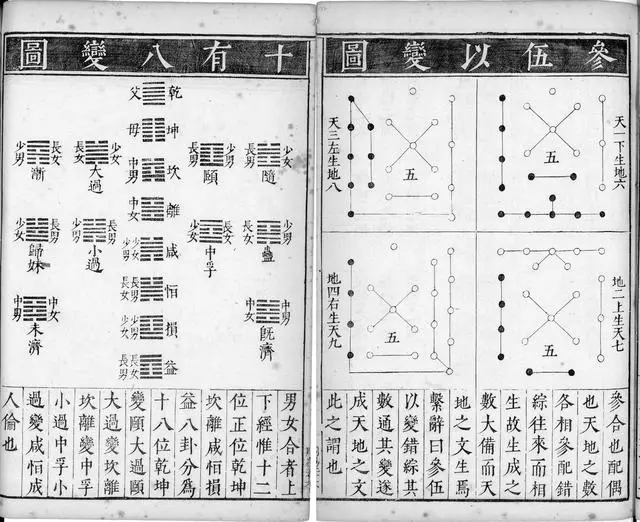 參伍以變圖
天一下生地六
五
天三左生地八
五
地二上生天七
五
地四右生天九
五
參合也配偶
也天地之數
各相參配錯
綜往來而相
生故生成之
數大備而天
地之文生焉
繫辭曰參伍
以變錯綜其
數通其變遂
成天地之文
此之謂也
十有八變圖
少女
長男
隨
少男
長男
頤
少男
長女
蠱
長女
少女
中孚
中男
中女
既濟
乾
父
坤
母
坎
中男
離
中女
咸
少女
少男
恒
長男
長女
損
少男
少女
益
長女
長男
少女
長女
大過
長女
少男
漸
長男
少男
小過
長男
少女
歸妹
中女
中男
未濟
男女合者上
下經惟十二
位正位乾坤
坎離咸恒損
益八卦分為
十八位乾坤
變頤大過頤
大過變坎離
坎離變中孚
小過中孚小
過變咸恒成
人倫也